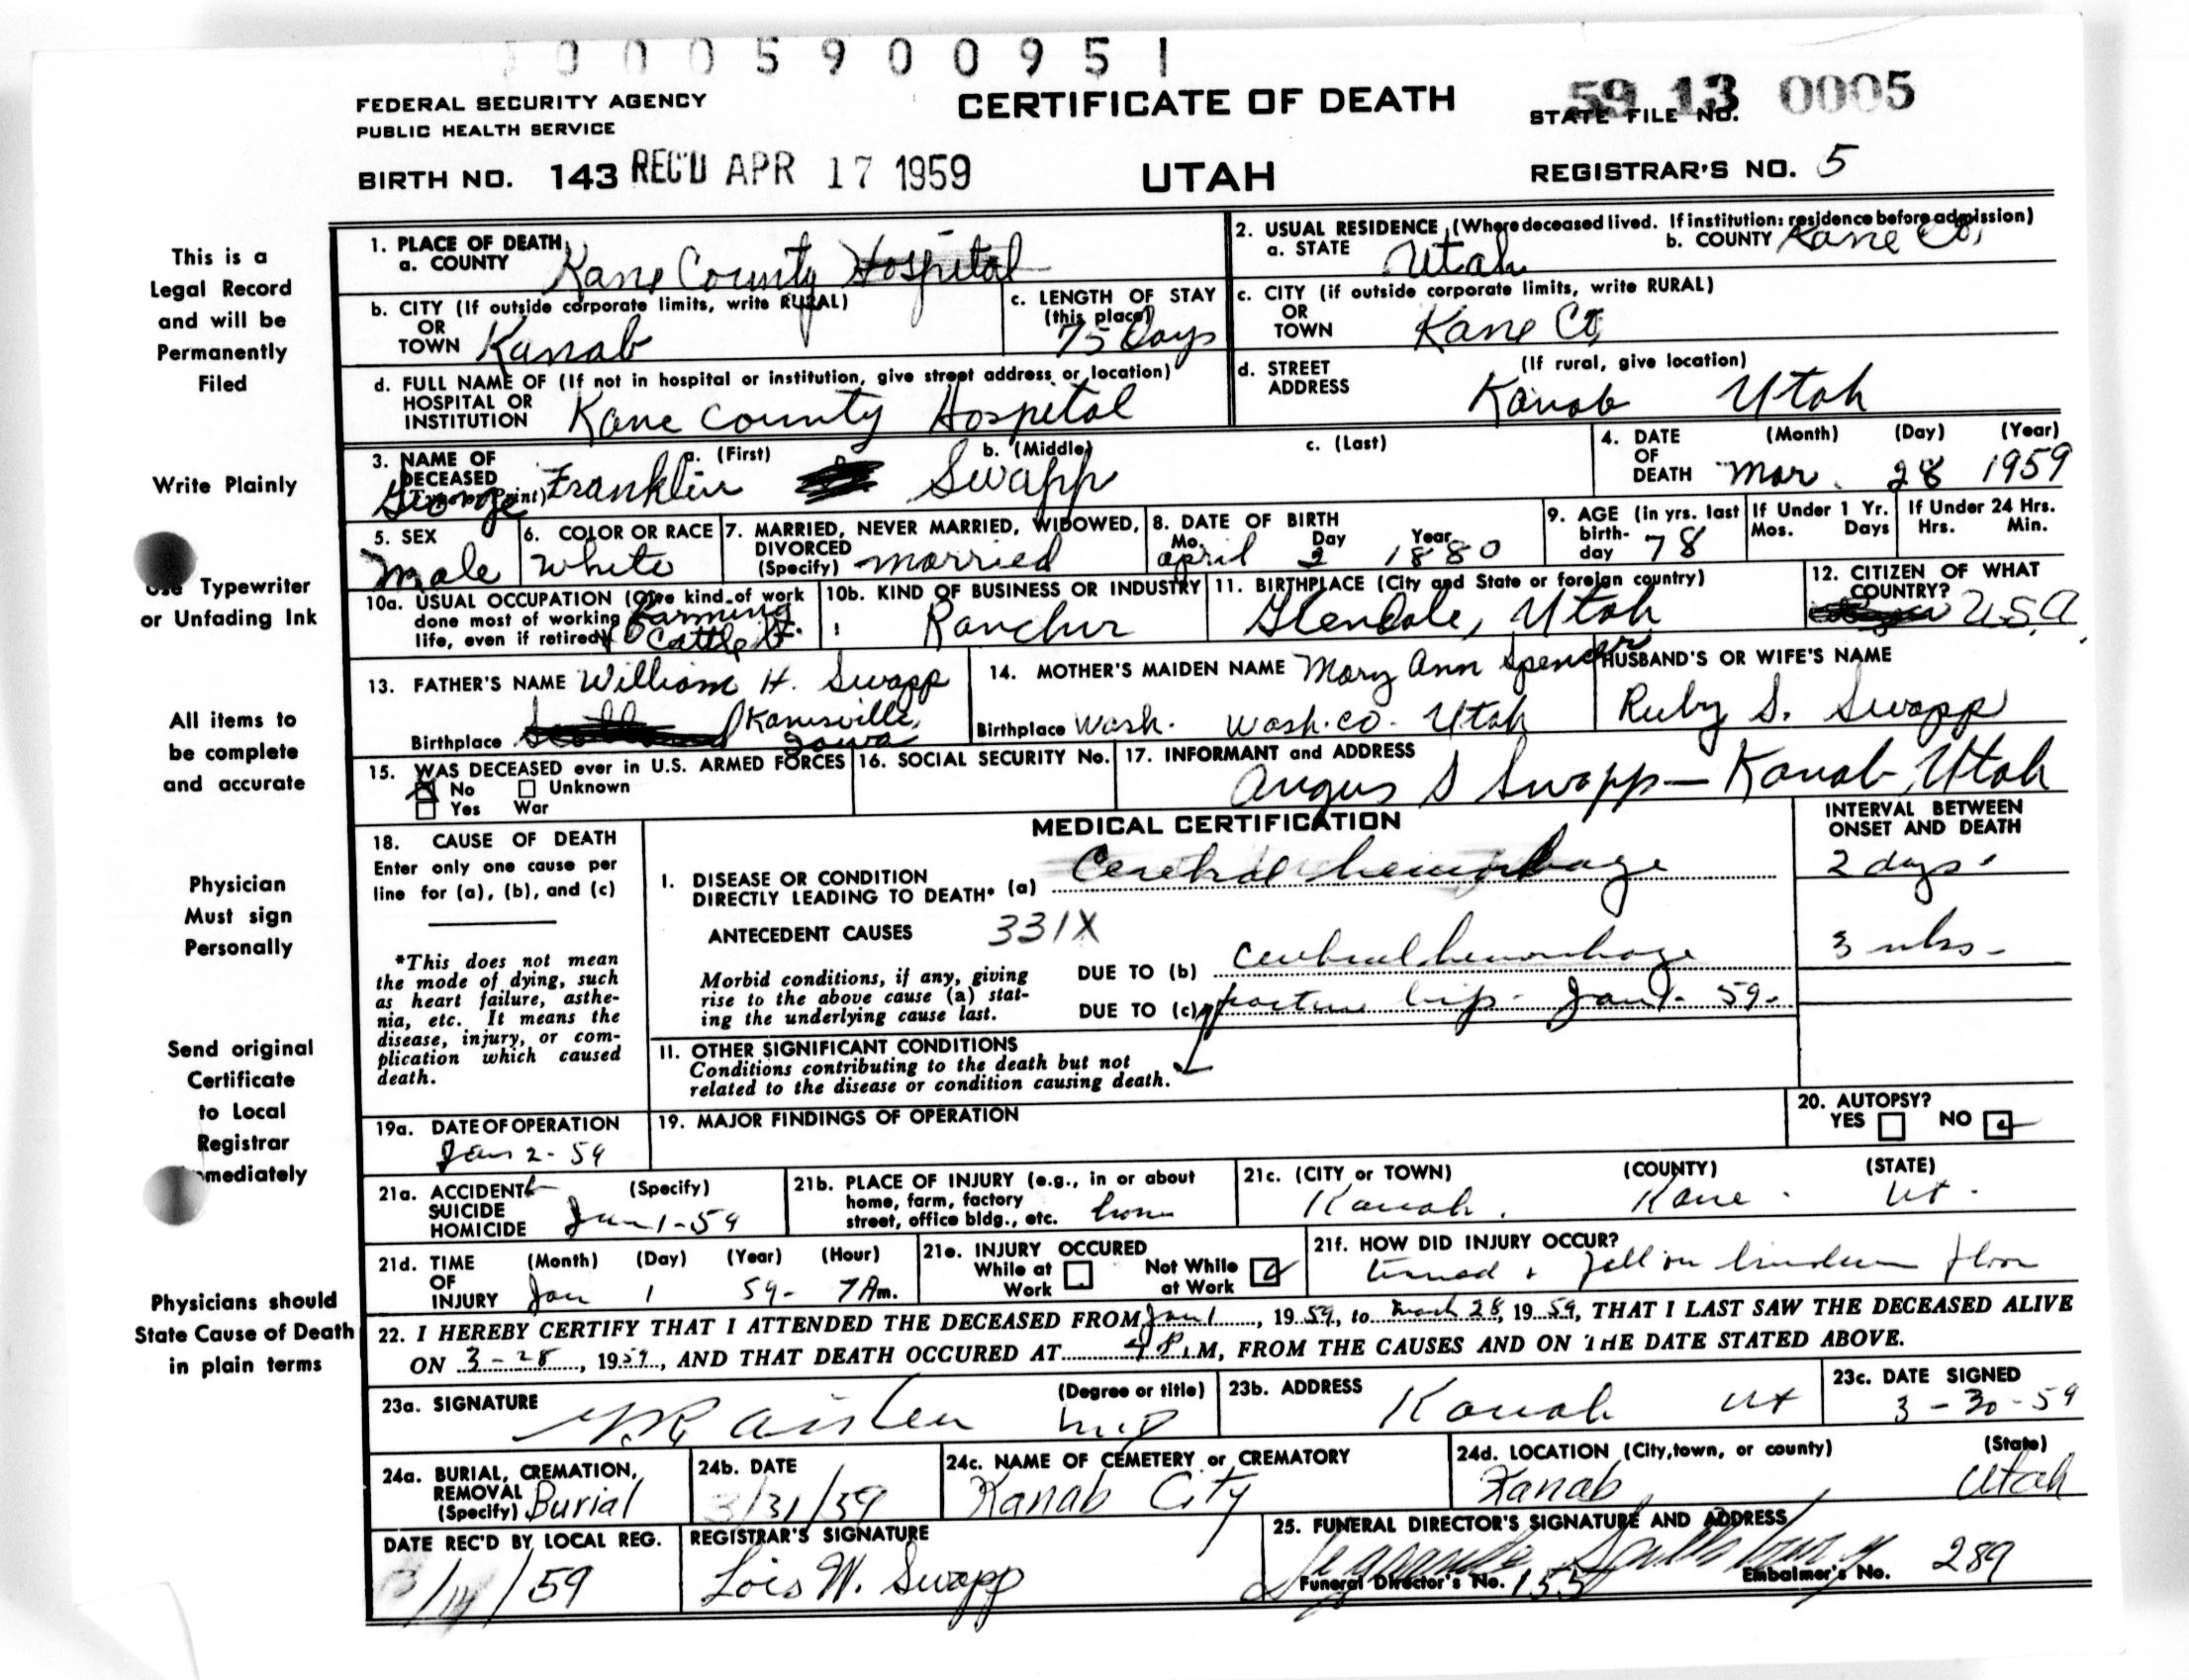 0005900951
FEDERAL SECURITY AGENCY
PUBLIC HEALTH SERVICE
CERTIFICATE OF DEATH
59 13 0005
STATE FILE NO.
BIRTH NO. 143 REC'D APR 17 1959
UTAH
REGISTRAR'S NO. 5
This is a
Legal Record
and will be
Permanently
Filed
Write Plainly
Use Typewriter
or Unfading Ink
All items to
be complete
and accurate
Physician
Must sign
Personally
Send original
Certificate
to Local
Registrar
Immediately
Physicians should
State Cause of Death
in plain terms
1. PLACE OF DEATH
a. COUNTY Kane County Hospital
2. USUAL RESIDENCE (Where deceased lived. If institution: residence before admission)
a. STATE Utah b. COUNTY Kane Co.
b. CITY (If outside corporate limits, write RURAL)
OR
TOWN Kanab
c. LENGTH OF STAY
(this place)
75 Days
c. CITY (if outside corporate limits, write RURAL)
OR
TOWN Kane Co
d. FULL NAME OF (If not in hospital or institution, give street address or location)
HOSPITAL OR
INSTITUTION Kane County Hospital
d. STREET (If rural, give location)
ADDRESS Kanab Utah
3. NAME OF DECEASED (Type or Print) a. (First) b. (Middle) c. (Last)
George Franklin Swapp
4. DATE (Month) (Day) (Year)
OF
DEATH Mar. 28 1959
5. SEX
Male
6. COLOR OR RACE
White
7. MARRIED, NEVER MARRIED, WIDOWED,
DIVORCED
(Specify) married
8. DATE OF BIRTH
Mo. Day Year
april 2 1880
9. AGE (in yrs. last
birth-
day 78
If Under 1 Yr.
Mos. Days
If Under 24 Hrs.
Hrs. Min.
10a. USUAL OCCUPATION (Give kind of work
done most of working
life, even if retired) Farming Cattle
10b. KIND OF BUSINESS OR INDUSTRY
Rancher
11. BIRTHPLACE (City and State or foreign country)
Glendale, Utah
12. CITIZEN OF WHAT
COUNTRY?
U.S.A.
13. FATHER'S NAME William H. Swapp
Birthplace Kanesville, Iowa
14. MOTHER'S MAIDEN NAME Mary Ann Spencer
Birthplace Wash. Wash. co. Utah
HUSBAND'S OR WIFE'S NAME
Ruby S. Swapp
15. WAS DECEASED ever in U.S. ARMED FORCES
No Unknown
Yes War
16. SOCIAL SECURITY No.
17. INFORMANT and ADDRESS
Angus S Swapp - Kanab Utah
18. CAUSE OF DEATH
Enter only one cause per
line for (a), (b), and (c)
*This does not mean
the mode of dying, such
as heart failure, asthe-
nia, etc. It means the
disease, injury, or com-
plication which caused
death.
MEDICAL CERTIFICATION
INTERVAL BETWEEN
ONSET AND DEATH
I. DISEASE OR CONDITION
DIRECTLY LEADING TO DEATH* (a) Cerebral hemorrhage 2 days
ANTECEDENT CAUSES 331X
Morbid conditions, if any, giving
rise to the above cause (a) stat-
ing the underlying cause last.
DUE TO (b) Cerebral hemorrhage 3 wks -
DUE TO (c) fracture hip - Jan 1 - 59 -
II. OTHER SIGNIFICANT CONDITIONS
Conditions contributing to the death but not
related to the disease or condition causing death.
19a. DATE OF OPERATION
Jan 2 - 59
19. MAJOR FINDINGS OF OPERATION
20. AUTOPSY?
YES NO
21a. ACCIDENT (Specify)
SUICIDE
HOMICIDE Jan 1 - 59
21b. PLACE OF INJURY (e.g., in or about
home, farm, factory
street, office bldg., etc. home
21c. (CITY or TOWN) (COUNTY) (STATE)
Kanab. Kane. Ut.
21d. TIME (Month) (Day) (Year) (Hour)
OF
INJURY Jan 1 59- 7 Am.
21e. INJURY OCCURED
While at Work Not While at Work
21f. HOW DID INJURY OCCUR?
turned & fell on linoleum floor
22. I HEREBY CERTIFY THAT I ATTENDED THE DECEASED FROM Jan 1, 1959, to March 28, 1959, THAT I LAST SAW THE DECEASED ALIVE
ON 3-28, 1959, AND THAT DEATH OCCURED AT 4 P.M, FROM THE CAUSES AND ON THE DATE STATED ABOVE.
23a. SIGNATURE (Degree or title)
Aiken MD
23b. ADDRESS
Kanab Ut
23c. DATE SIGNED
3-30-59
24a. BURIAL, CREMATION,
REMOVAL
(Specify) Burial
24b. DATE
3/31/59
24c. NAME OF CEMETERY or CREMATORY
Kanab City
24d. LOCATION (City, town, or county) (State)
Kanab Utah
DATE REC'D BY LOCAL REG.
REGISTRAR'S SIGNATURE
Lois W. Swapp
25. FUNERAL DIRECTOR'S SIGNATURE AND ADDRESS
Funeral Director's No. 155 Embalmer's No. 289